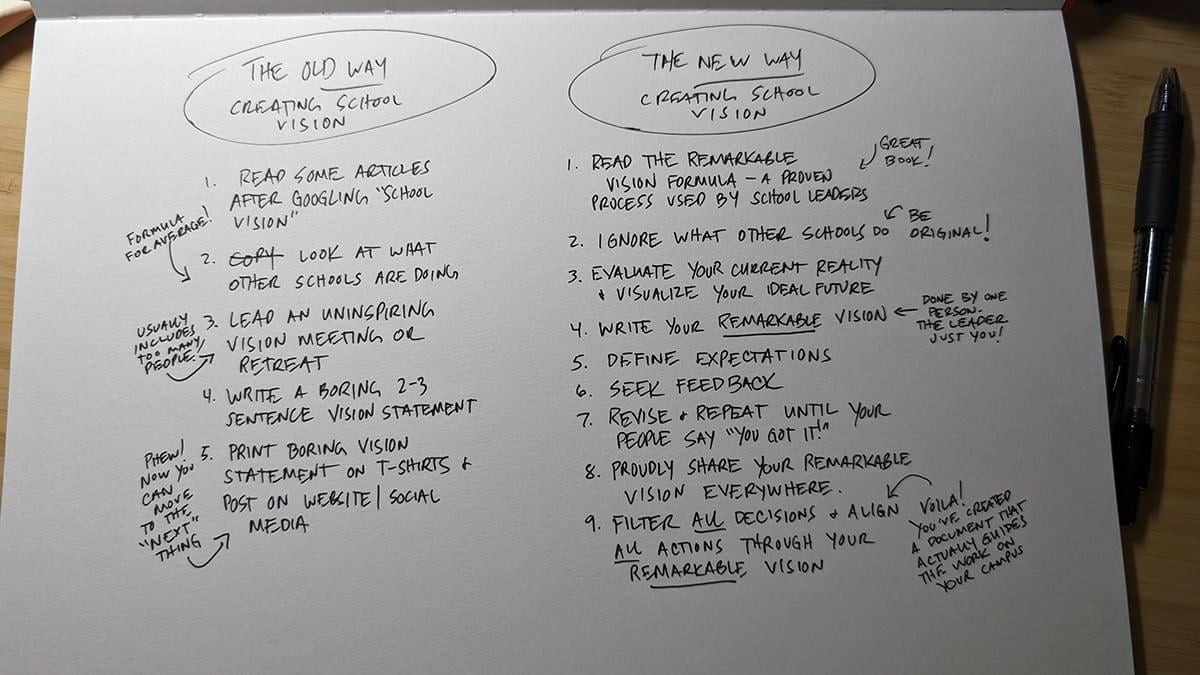 THE OLD WAY
CREATING SCHOOL
VISION
1. READ SOME ARTICLES
AFTER GOOGLING "SCHOOL
VISION"
FORMULA
FOR AVERAGE!
2. COPY LOOK AT WHAT
OTHER SCHOOLS ARE DOING
3. LEAD AN UNINSPIRING
VISION MEETING OR
RETREAT
USUALLY
INCLUDES
TOO MANY
PEOPLE.
4. WRITE A BORING 2-3
SENTENCE VISION STATEMENT
5. PRINT BORING VISION
STATEMENT ON T-SHIRTS &
POST ON WEBSITE/SOCIAL
MEDIA
PHEW!
NOW YOU
CAN
MOVE
TO THE
"NEXT"
THING
THE NEW WAY
CREATING SCHOOL
VISION
1. READ THE REMARKABLE
VISION FORMULA – A PROVEN
PROCESS USED BY SCHOOL LEADERS
GREAT
BOOK!
2. IGNORE WHAT OTHER SCHOOLS DO
BE
ORIGINAL!
3. EVALUATE YOUR CURRENT REALITY
& VISUALIZE YOUR IDEAL FUTURE
4. WRITE YOUR REMARKABLE VISION
DONE BY ONE
PERSON.
THE LEADER
JUST YOU!
5. DEFINE EXPECTATIONS
6. SEEK FEEDBACK
7. REVISE & REPEAT UNTIL YOUR
PEOPLE SAY "YOU GOT IT!"
8. PROUDLY SHARE YOUR REMARKABLE
VISION EVERYWHERE.
9. FILTER ALL DECISIONS & ALIGN
ALL ACTIONS THROUGH YOUR
REMARKABLE VISION
VOILA!
YOU'VE CREATED
A DOCUMENT THAT
ACTUALLY GUIDES
THE WORK ON
YOUR CAMPUS